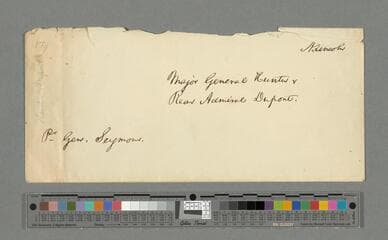 A. Lincoln
Major General Hunter &
Rear Admiral Dupont.
Pr Gen. Seymour.